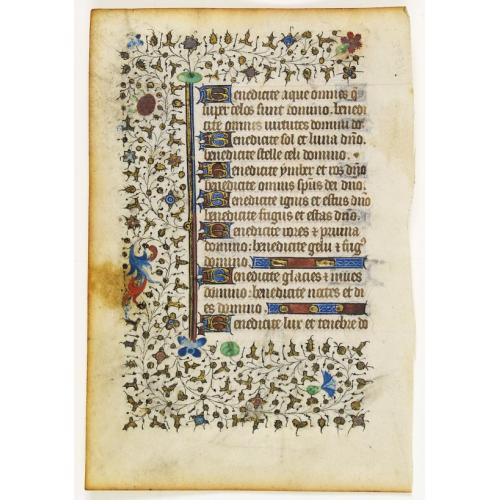 Benedicite aque omnes q̄
super celos sunt domino. benedi
cite omnes uirtutes domini do
Benedicite sol et luna dn̄o
benedicite stelle celi domino.
Benedicite ymber et ros dn̄o
benedicite omnis sp̄us dei dn̄o.
Benedicite ignis et estus dn̄o
benedicite frigus et estas dn̄o.
Benedicite rores ⁊ pruina
domino: benedicite gelu ⁊ frig9
domino.
Benedicite glacies ⁊ niues
domino: benedicite noctes et di
es domino.
Benedicite lux et tenebre do